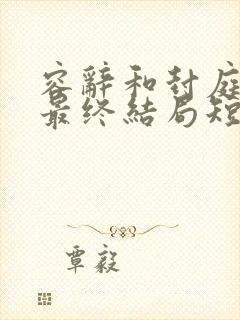 容辭和封庭
最終結局短
覃毅